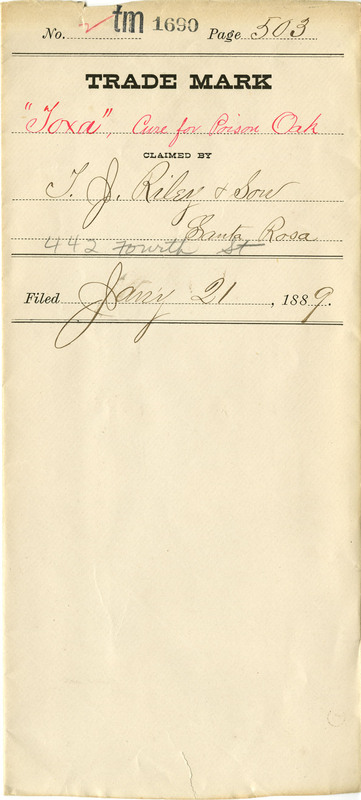 No. tm 1690 Page 503
TRADE MARK
"Toxa", Cure for Poison Oak
CLAIMED BY
T. J. Riley & Son
Santa Rosa
442 Fourth St
Filed Jany 21, 1889.